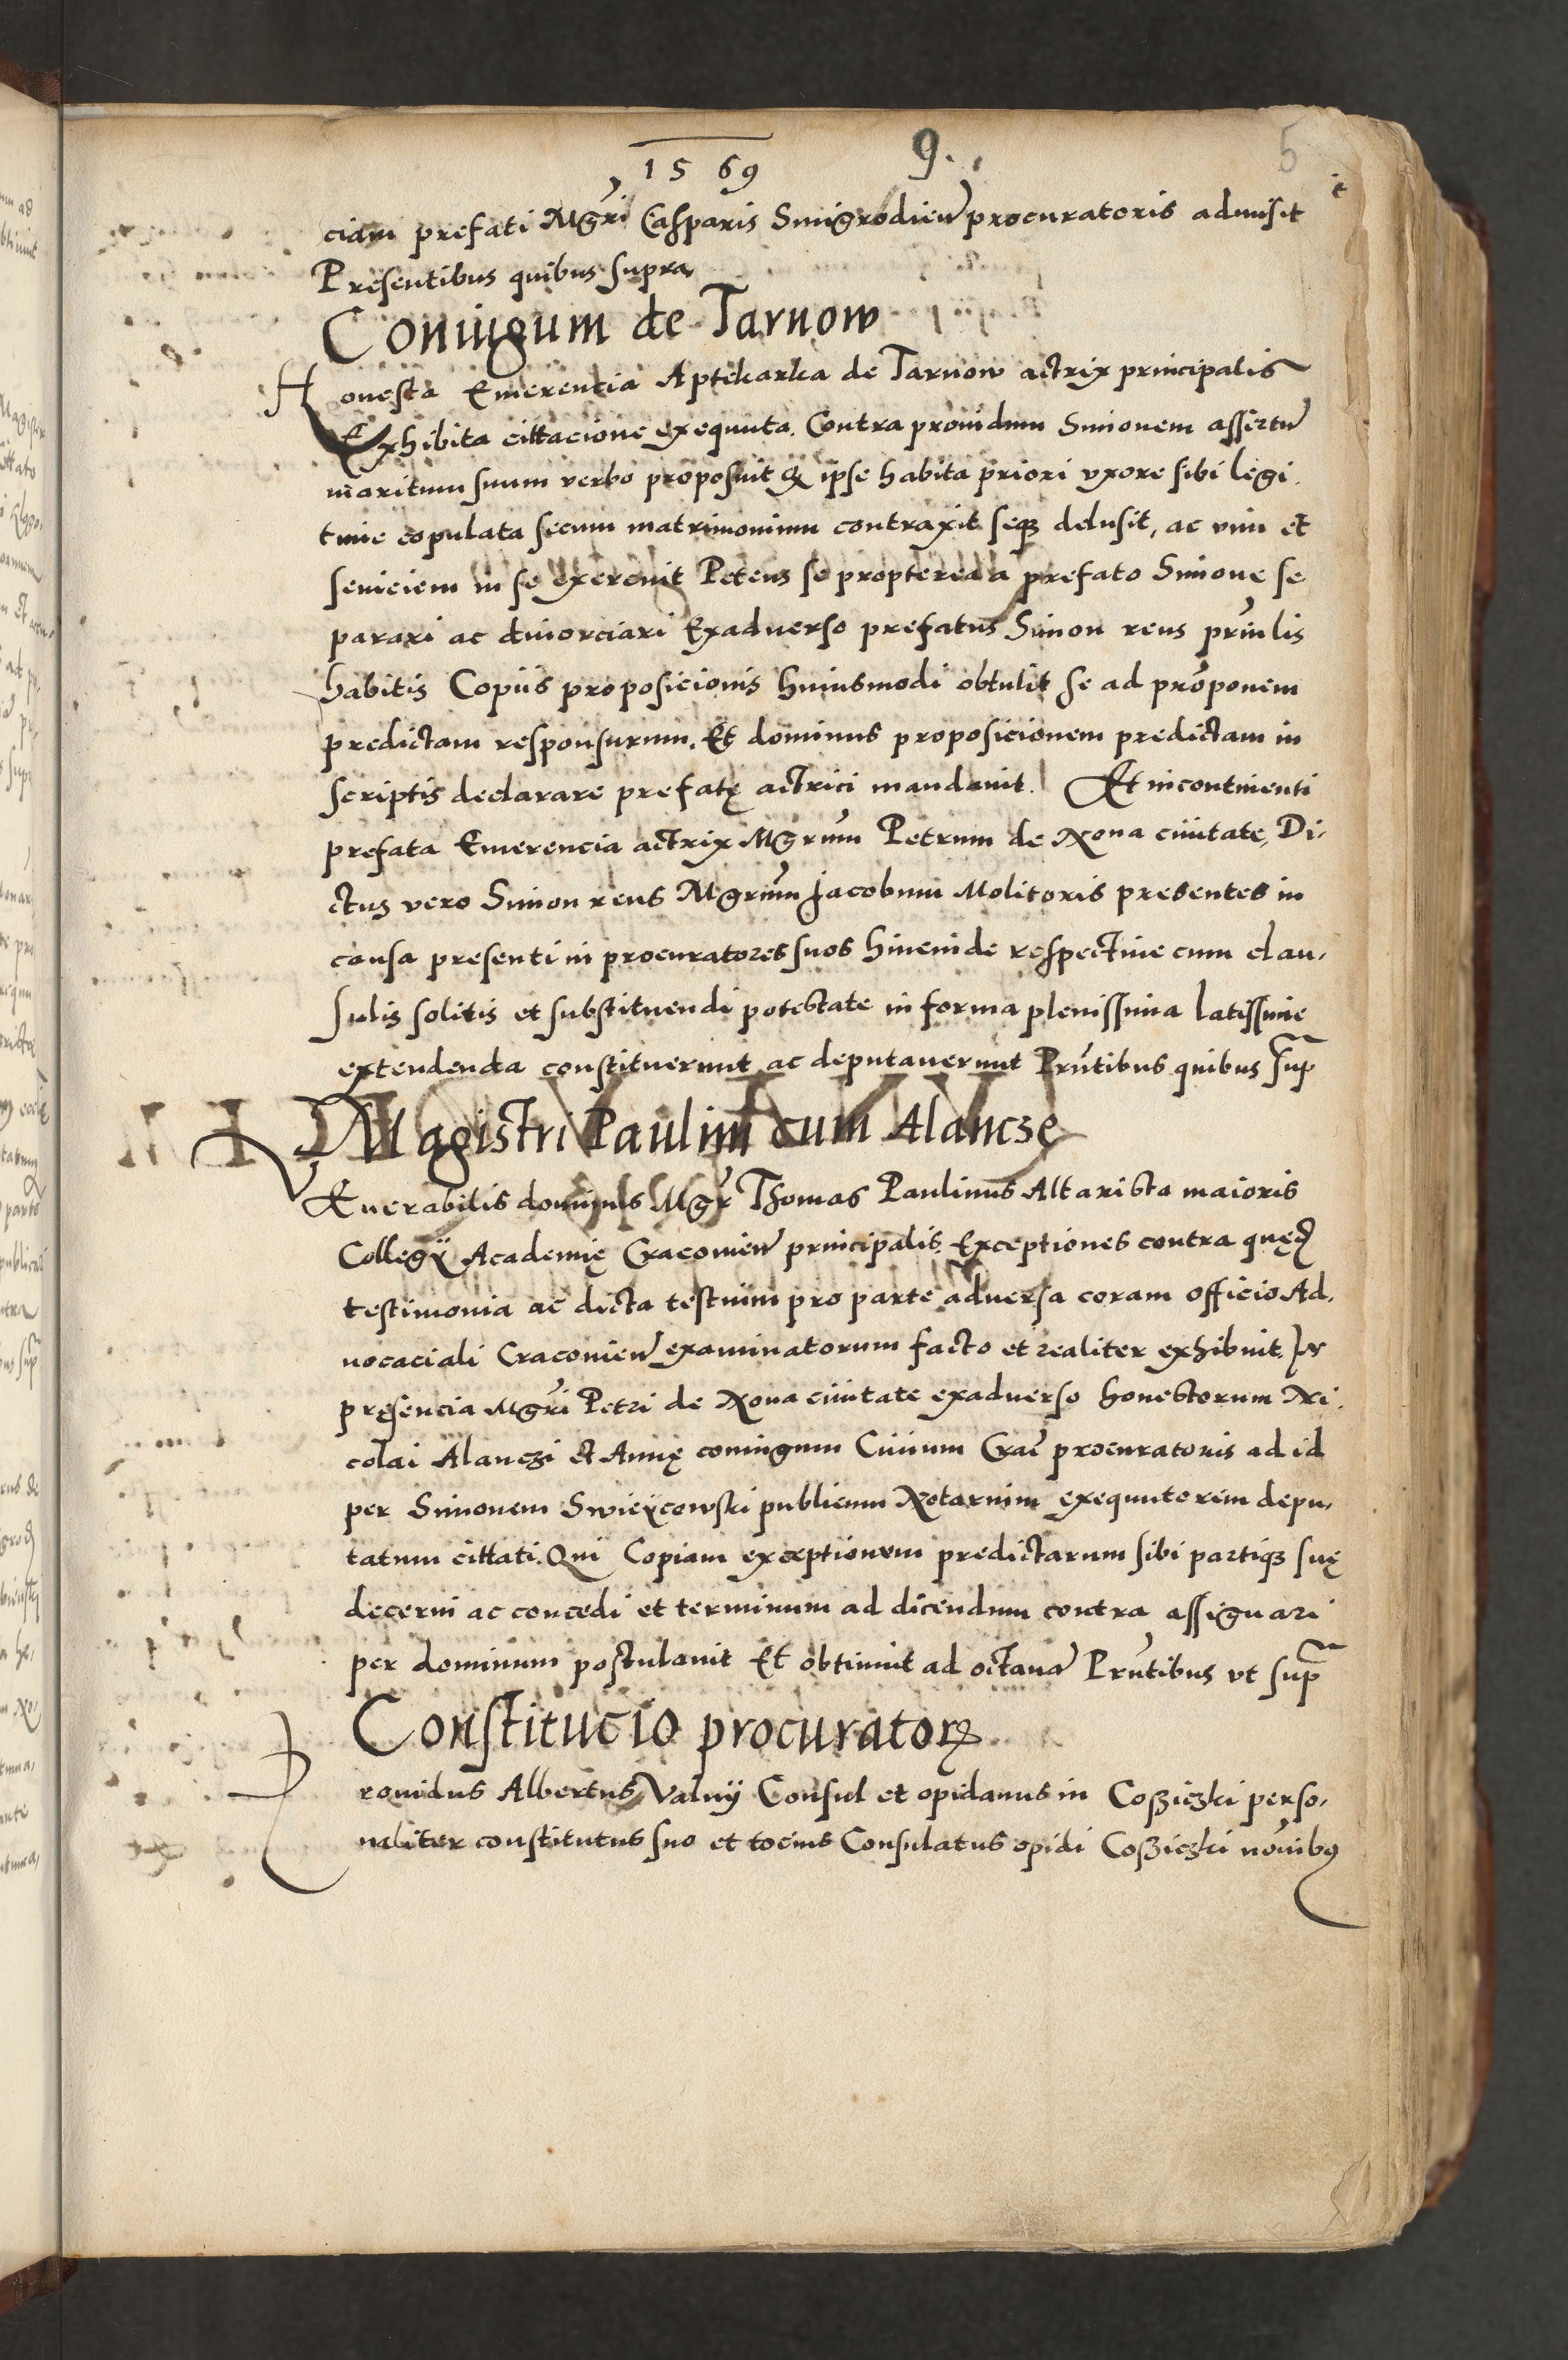 1569 9. 5
ciam prefati Mgri Casparis Smigrodien procuratoris admisit
Presentibus quibus supra
Coniugum de Tarnow
Honesta Emerencia Aptekarka de Tarnow actrix principalis
Exhibita cittacione exequuta. Contra prouidum Simonem assertu
maritum suum verbo proposuit q ipse habita priori vxore sibi legi,
time copulata secum matrimonium contraxit seqꝫ delusit, ac vim et
seuiciem in se exercuit Petens se propterea a prefato Simone se
parari ac diuorciari Exaduerso prefatus Simon reus prinlis
habitis Copiis proposicionis huiusmodi obtulit se ad proponem
predictam responsurum. Et dominus proposicionem predictam in
scriptis declarare prefatę actrici mandauit. Et incontinenti
prefata Emerencia actrix Mgrum Petrum de Noua ciuitate, Di,
ctus vero Simon reus Mgrum Jacobum Molitoris presentes in
causa presenti in procuratores suos hincinde respectiue cum clau,
sulis solitis et substituendi potestate in forma plenissima latissime
extendenda constituerunt ac deputauerunt Prntibus quibus sup
Magistri Paulini cum Alancze
Venerabilis dominus Mgr Thomas Paulinus Altarista maioris
Collegij Academię Cracouien principalis. Exceptiones contra quęd
testimonia ac dicta testium pro parte aduersa coram officio Ad,
uocaciali Cracouien examinatorum facto et realiter exhibuit. In
pręsencia Mgri Petri de Noua ciuitate exaduerso honestorum Ni,
colai Alanczi et Annę coniugum Ciuium Crac procuratoris ad id
per Simonem Swieycowski publicum Notarium exequutorem depu,
tatum cittati. Qui Copiam exceptionem predictarum sibi partiqꝫ suę
decerni ac concedi et terminum ad dicendum contra assignari
per dominum postulauit Et obtinuit ad octaua Prntibus vt sup
Constitucio procuratorꝝ
Prouidus Albertus Valny Consul et opidanus in Coßiczki perso,
naliter constitutus suo et tocius Consulatus opidi Coßiczki noibꝰ